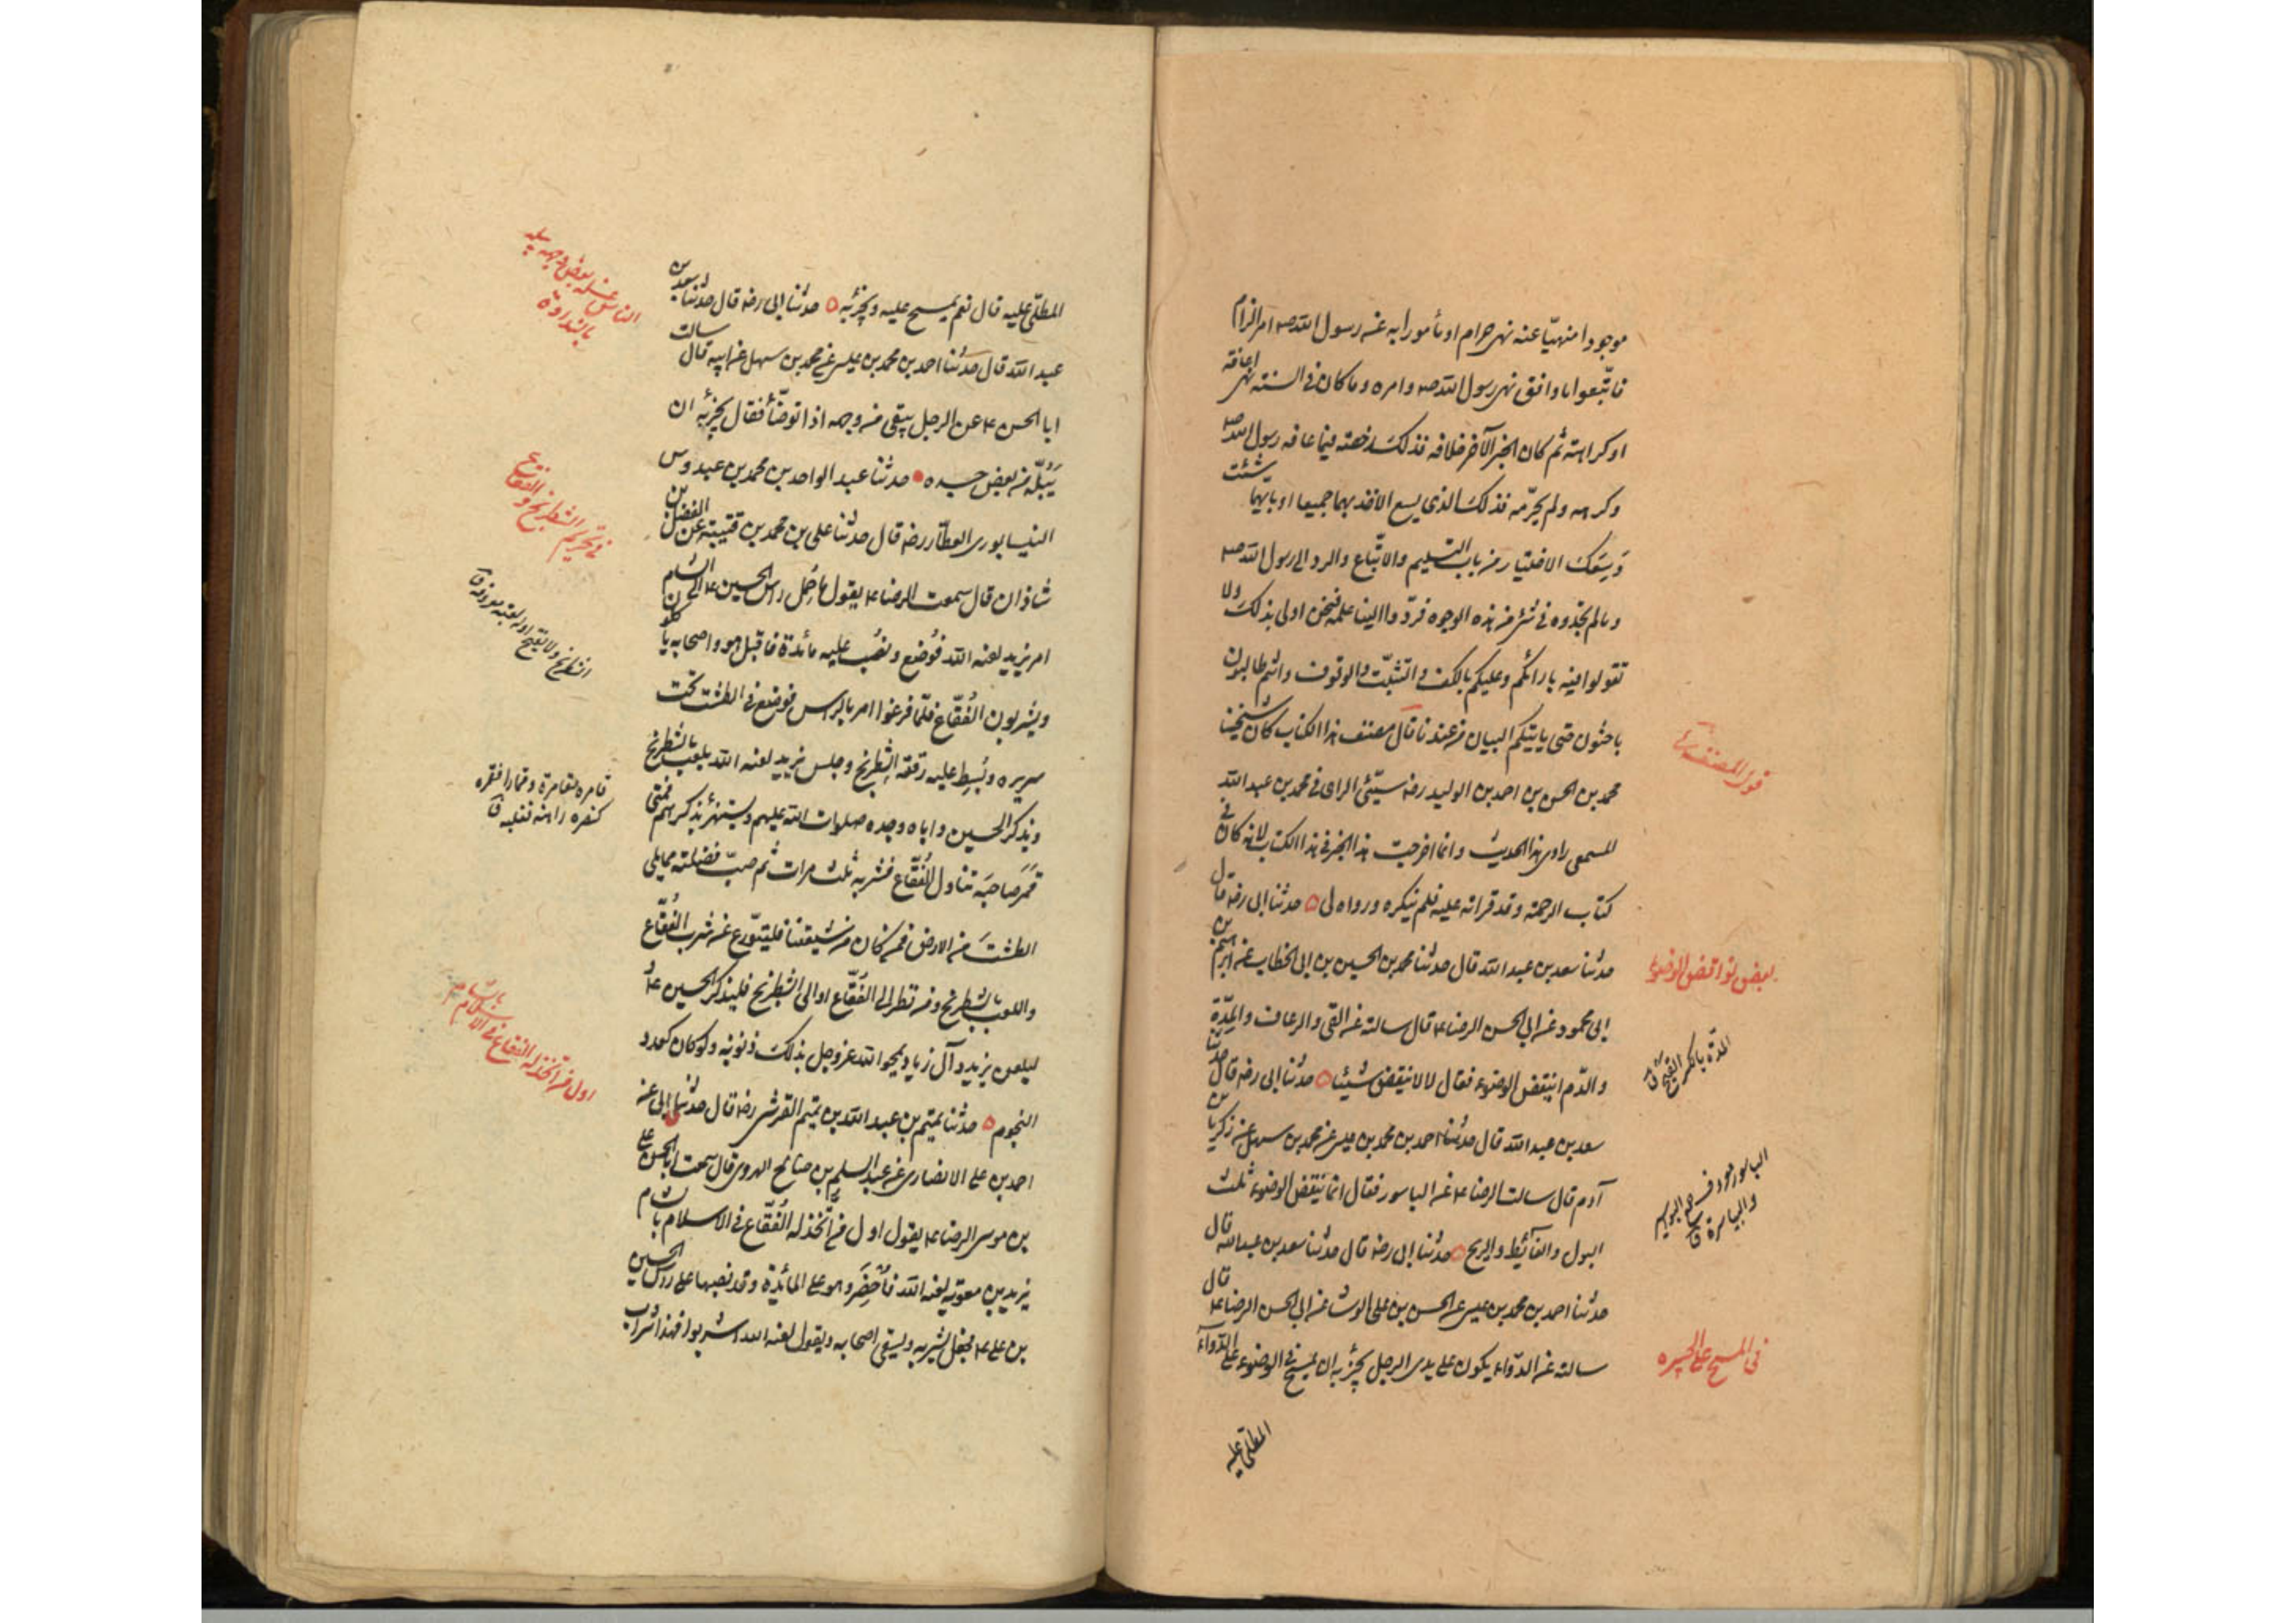 موجودا منهيّا عنه نهى حرام او مأمورا به عن رسول الله صـ امر الزام
فاتّبعوا ما وافق نهى رسول الله صـ وامره وما كان فى السنة نهى اعافة
او كراهة ثم كان الخبر الآخر خلافه فذلك رخصة فيما عافه رسول الله صـ
وكرهه ولم يحرّمه فذلك الذى يسع الاخذ بهما جميعا او بايهما شئت
وَسِعَك الاختيار من باب التسليم والاتّباع والرد الى رسول الله صـ
وما لم تجدوه فى شئ من هذه الوجوه فردّوا الينا علمه فنحن اولى بذلك ولا
تقولوا فيه بارائكم وعليكم بالكف والتثبّت والوقوف وانتم طالبون
باحثون حتى ياتيكم البيان من عندنا قال مصنف هذا الكتاب كان شيخنا
محمد بن الحسن بن احمد بن الوليد رضه سيّئ الراى فى محمد بن عبد الله
المسمعى راوى هذا الحديث وانما اخرجت هذا الخبر فى هذا الكتاب لانه كان فى
كتاب الرحمة وقد قراته عليه فلم ينكره ورواه لى ه حدثنا ابى رضه قال
حدثنا سعد بن عبد الله قال حدثنا محمد بن الحسين بن ابى الخطاب عن ابرهيم بن
ابى محمود عن ابى الحسن الرضا ع قال سالته عن القئ والرعاف والمِدّة
والدّم اينقض الوضوء فقال لا لا ينقض شيئا ه حدثنا ابى رضه قال حدثنا
سعد بن عبد الله قال حدثنا احمد بن محمد بن عيسى عن محمد بن سهل عن زكريا بن
آدم قال سالت الرضا ع عن الباسور فقال انما ينقض الوضوء ثلث
البول والغائط والريح ه حدثنا ابى رضه قال حدثنا سعد بن عبد الله قال
حدثنا احمد بن محمد بن عيسى عن الحسن بن على الوشا عن ابى الحسن الرضا ع قال
سالته عن الدّواء يكون على يدى الرجل يجزيه ان يمسح فى الوضوء على الدّواء
المطلّى عليه
قول المصنف
بعض نواقض الوضوء
المدّة بالكسر القيح ق
الباسور
فى المسح على الجبيره
المطلّى عليه قال نعم يمسح عليه ويجزئه ه حدثنا ابى رضه قال حدثنا سعد بن
عبد الله قال حدثنا احمد بن محمد بن عيسى عن محمد بن سهل عن ابيه قال سالت
ابا الحسن ع عن الرجل يبقى من وجهه اذا توضّأ فقال يجزئه ان
يَبُلّه من بعض جسده ه حدثنا عبد الواحد بن محمد بن عبدوس
النيسابورى العطّار رضه قال حدثنا على بن محمد بن قتيبة عن الفضل بن
شاذان قال سمعت الرضا ع يقول لما حُمِل راس الحسين ع الى الشام
امر يزيد لعنه الله فوُضع ونُصب عليه مائدة فاقبل هو واصحابه ياكلون
ويشربون الفُقّاع فلمّا فرغوا امر بالراس فوضع فى الطشت تحت
سريره وبُسِط عليه رقعة الشطرنج وجلس يزيد لعنه الله يلعب بالشطرنج
ويذكر الحسين واباه وجده صلوات الله عليهم ويستهزئ بذكرهم فمتى
قَمَرَ صاحبَه تناول الفُقّاع فشربه ثلث مرات ثم صبّ فضلته مما يلى
الطشتَ من الارض فمن كان من شيعتنا فليتورّع عن شرب الفُقّاع
واللعب بالشطرنج ومن نظر الى الفُقّاع او الى الشطرنج فليذكر الحسين ع و
ليلعن يزيد وآل زياد يمحو الله عز وجل بذلك ذنوبه ولو كان كعدد
النجوم ه حدثنا تميم بن عبد الله بن تميم القرشى رضه قال حدثنا ابى عن
احمد بن على الانصارى عن عبد السلم بن صالح الهروى قال سمعت ابا الحسن على
بن موسى الرضا ع يقول اول من اتّخذ له الفُقّاع فى الاسلام بالشام
يزيد بن معوية لعنه الله فأُحْضِرَ وهو على المائدة وقد نصبها على راس الحسين
بن على ع فجعل يشربه ويسقى اصحابه ويقول لعنه الله اشربوا فهذا شراب
فى تحريم الشطرنج والفقاع
الشطرنج ولا يفتح اوله لعبة معروفة ق
قامره مقامرة وقمارا فقمره
كنصره راهنه فغلبه ق
اول من اتّخذ له الفقاع فى الاسلام بالشام